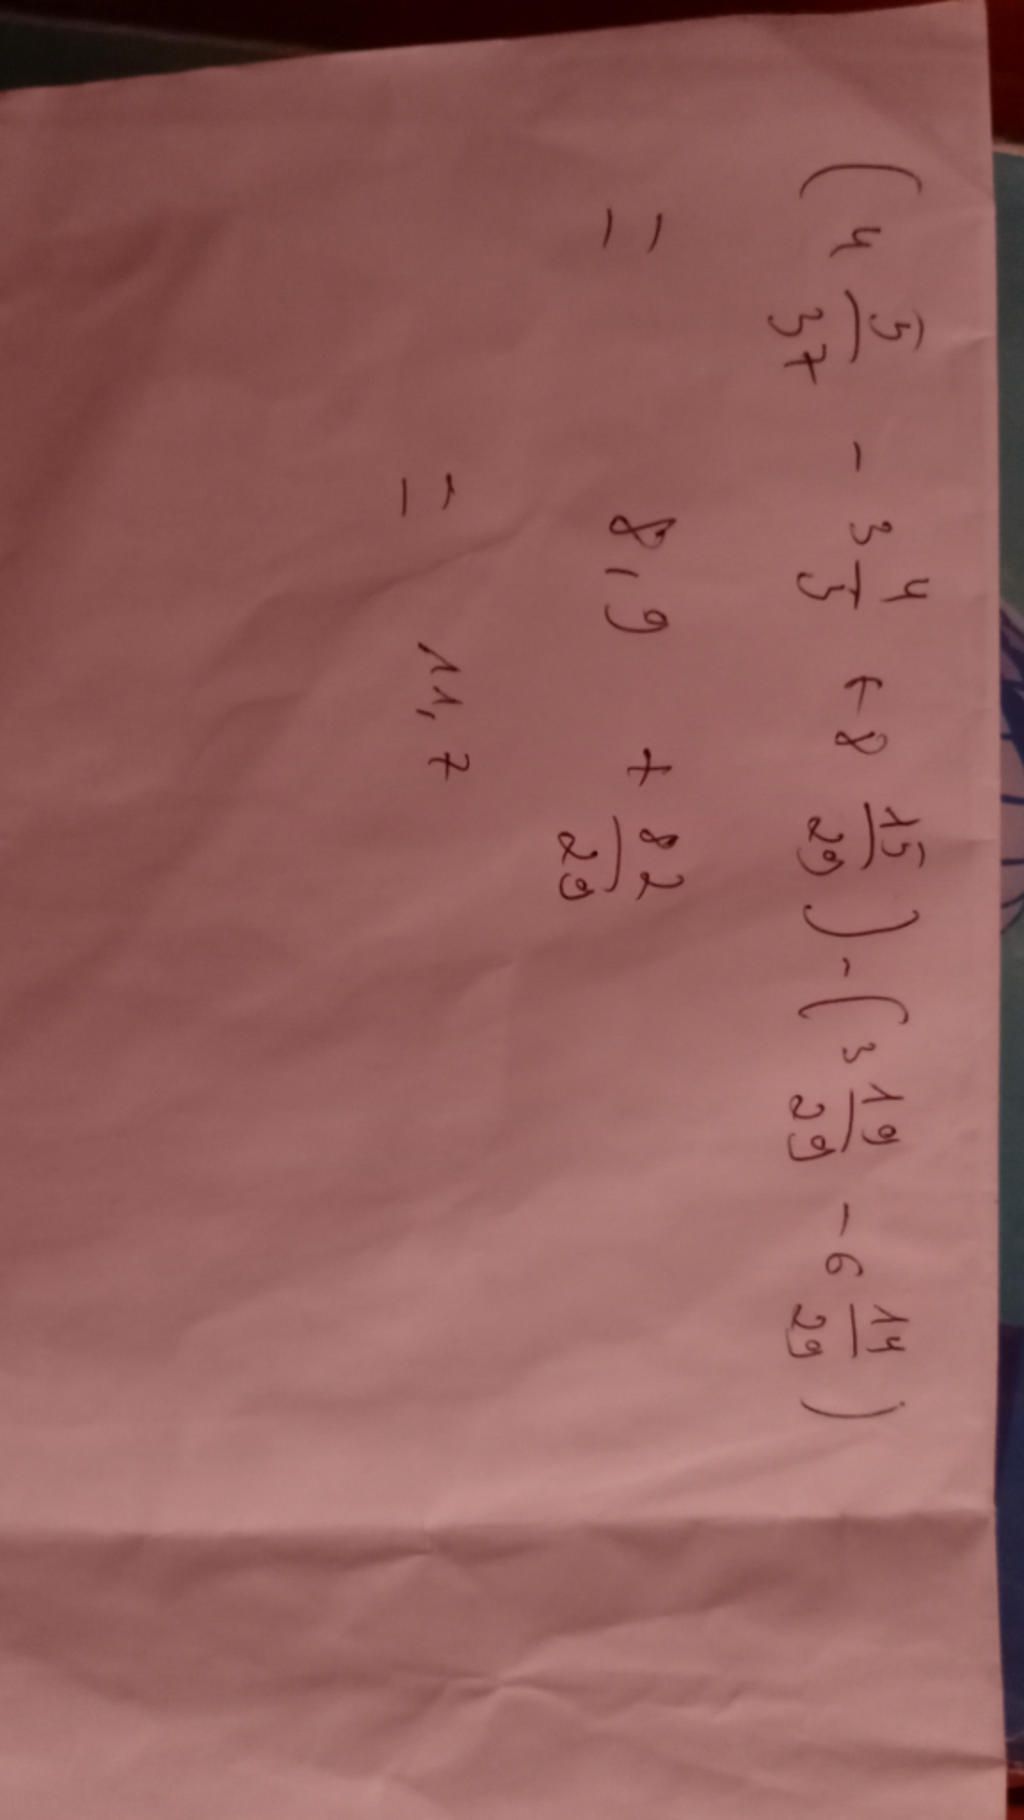 (4 5/37 - 3 4/5 + 8 15/29) - (3 19/29 - 6 14/29)
= 8,9 + 82/29
= 11,7